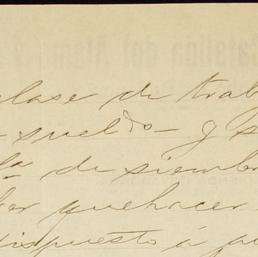 clase de trab
- sueldo - y s
la de siembr
ber quehacer
dispuesto á